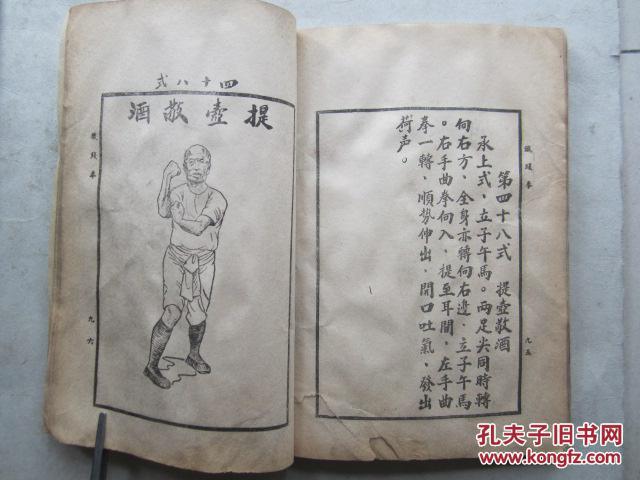 鐵綫拳
九五
第四十八式 提壺敬酒
承上式，立子午馬。兩足尖同時轉
向右方，全身亦轉向右邊，立子午馬
。右手曲拳向入，提至耳間，左手曲
拳一轉，順勢伸出，開口吐氣，發出
声。
四十八式
提壺敬酒
鐵綫拳
九六
孔夫子旧书网
www.kongfz.com